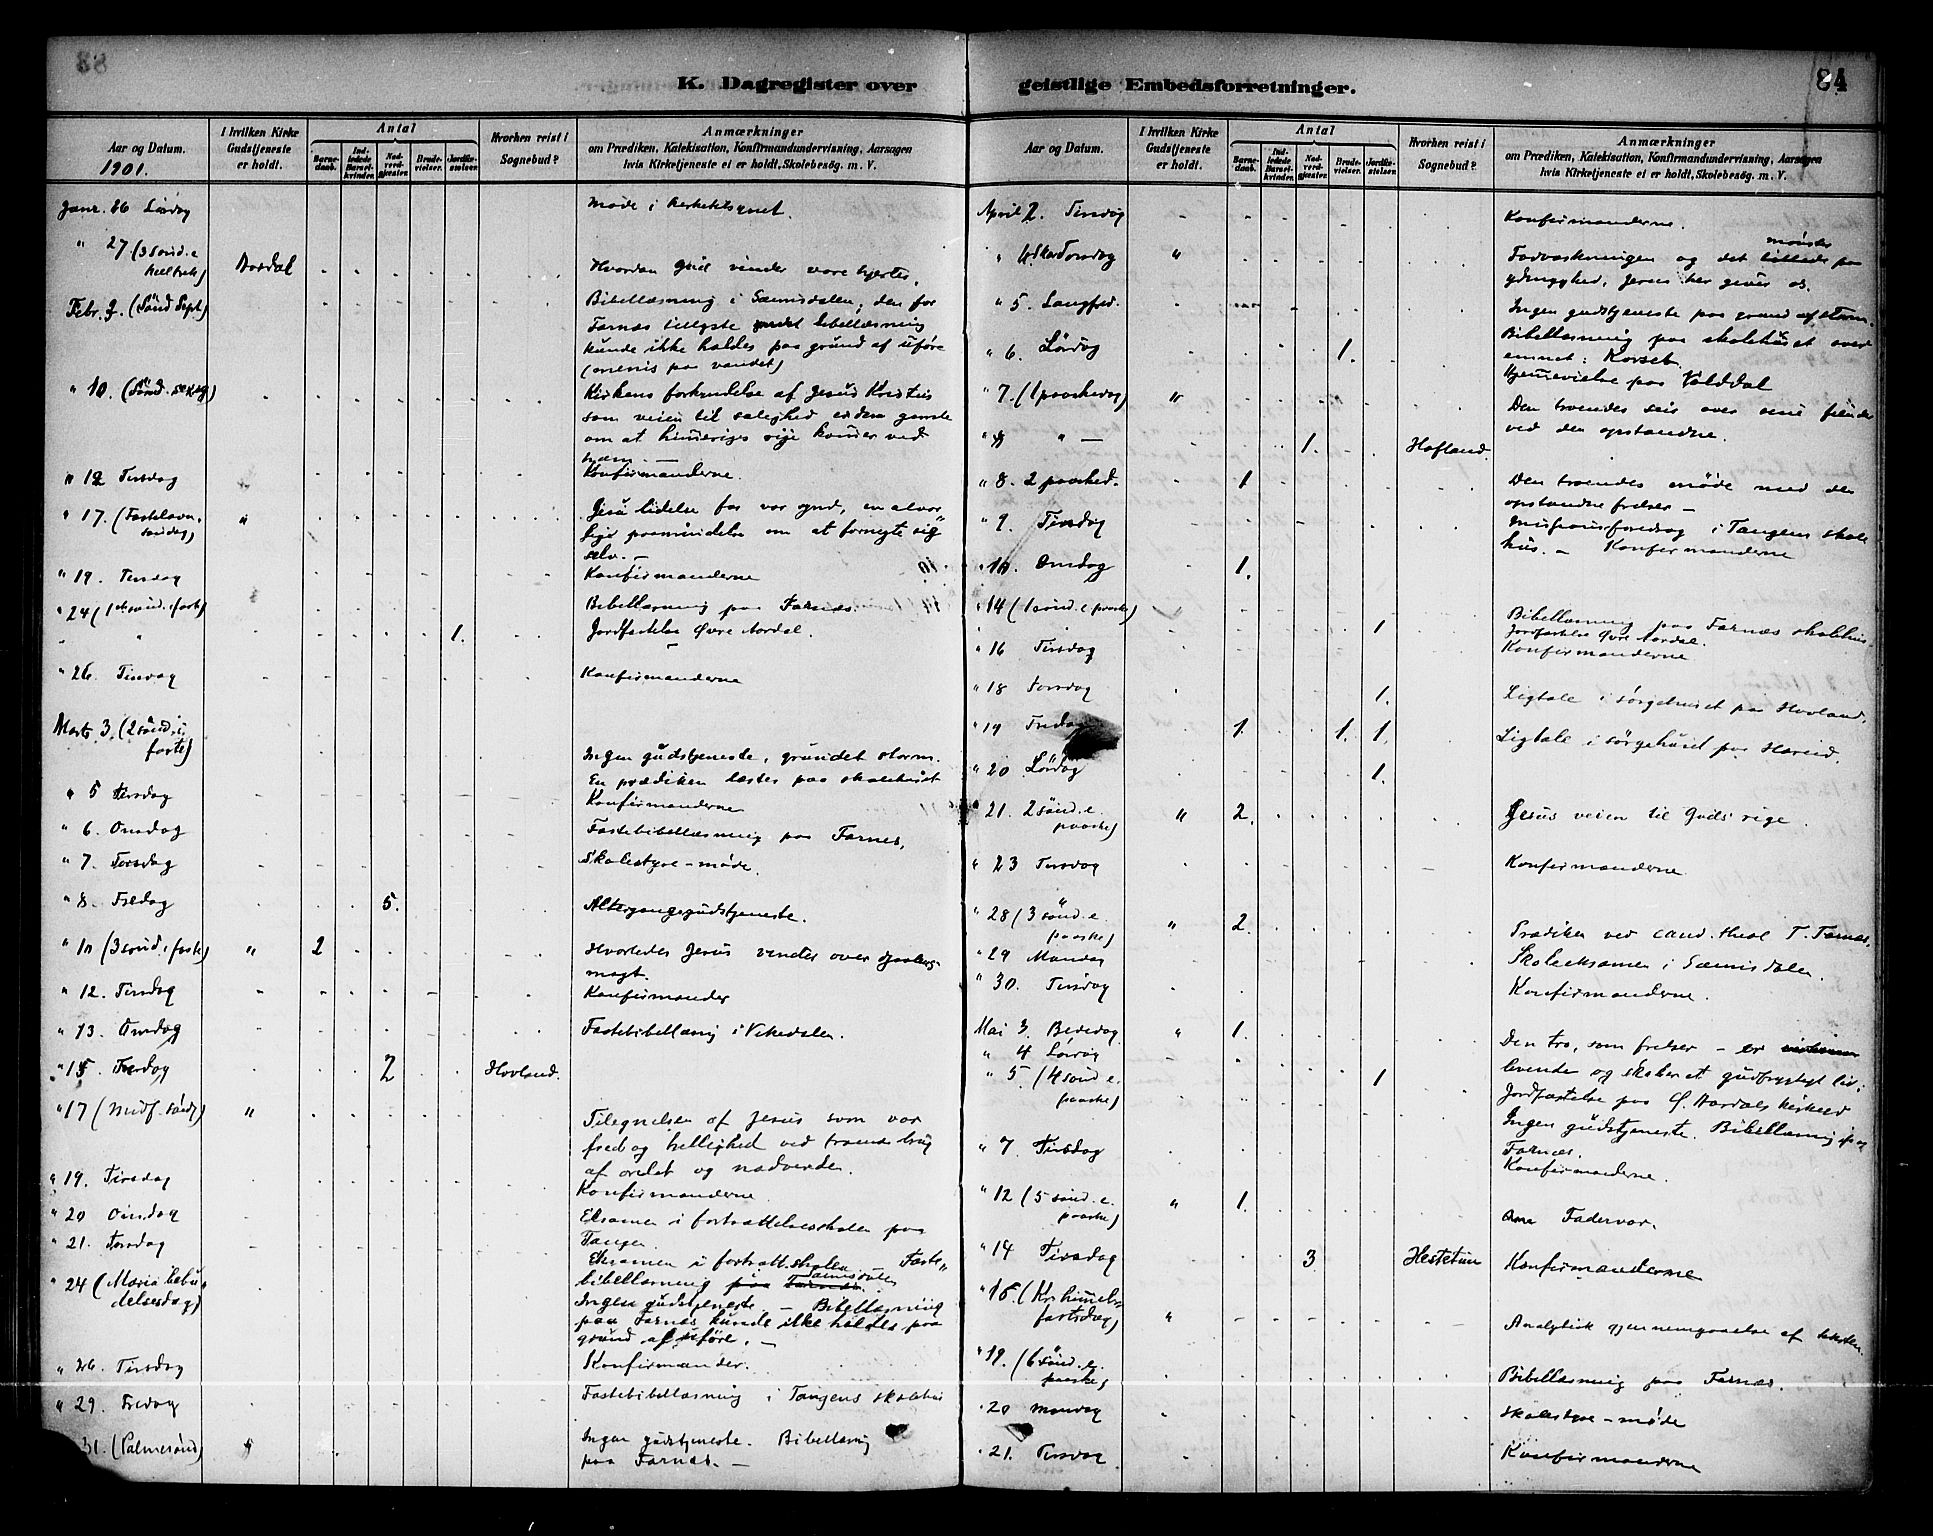 88
K. Dagregister over
Aar og Datum.
1901.
I hvilken Kirke Gudstjeneste er holdt.
Antal
Barne-daab.
Ind-ledede Barsel-kvinder.
Nad-verd-gjæster.
Brude-vielser.
Jordfæ-stelser.
Hvorhen reist i Sognebud?
Anmærkninger
om Prædiken, Katekisation, Konfirmandundervisning, Aarsagen
hvis Kirketjeneste ei er holdt, Skolebesøg. m. V.
Janr. 26 Lördag Møde i
" 27 (3 sönd. e
Aardal Hvordan Gud vinder vore hjerter.
Febr. 3. (Sönd Sept) Bibellæsning i Sæmisdalen; den for
Farnæs tillyste bibellæsning
kunde ikke holdes paa grund af uføre
(menis paa vandet)
" 10. (Sönd. sexag) Kirkens forkyndelse af Jesus Kristus
som veien til salighed
om at himmeriges rige kommer ved
" 12 Tirsdag Konfirmanderne.
" 17. (Fastelavn- " Jesu lidelse for vor synd, en alvor-
söndag) lige paamindelse om at fornegte sig
selv. —
" 19. Tirsdag Konfirmanderne
" 24 (1ste sönd. i faste) Bibellæsning paa Farnæs.
" " 1. Jordfæstelse Øvre Aardal.
" 26. Tirsdag Konfirmanderne
Marts 3. (2 sönd. i
faste) Ingen gudstjeneste, grundet storm.
En prædiken læstes paa skolehuset
" 5 Tirsdag Konfirmanderne
" 6. Onsdag Fastebibellæsning paa Farnes.
" 7. Torsdag Skolestyre-møde.
" 8. Fredag 5. Altergangsgudstjeneste.
" 10 (3 sönd. i faste) " 2 Hvorledes Jesus vinder over djævelens
magt.
" 12. Tirsdag Konfirmander
" 13. Onsdag Fastebibellæsnig i Vikedalen.
" 15 Fredag 2 Hovland.
" 17 (Midf. sönd) " Tilegnelsen af Jesus som vor
fred og hellighed ved troens brug
af ordet og nadverden.
" 19. Tirsdag Konfirmanderne
" 20 Onsdag Eksamen i fortsættelsesskolen paa
Tangen.
" 21. Torsdag Eksamen i fortsætt.skolen Faste-
bibellæsning paa Farnæs. Sæmisdalen
" 24 (Maria bebu-
delsesdag) Ingen gudstjeneste. — Bibellæsning
paa Farnæs kunde ikke holdes paa
grund af uføre. —
" 26. Tirsdag Konfirmander.
" 29. Fredag Fastebibellæsning i Tangens skolehus
31. (Palmesönd) " Ingen gudstjeneste. Bibellæsnig
paa Farnæs. —
84
geistlige Embedsforretninger.
Aar og Datum.
I hvilken Kirke Gudstjeneste er holdt.
Antal
Barne-daab.
Ind-ledede Barsel-kvinder.
Nad-verd-gjæster.
Brude-vielser.
Jordfæ-stelser.
Hvorhen reist i Sognebud?
Anmærkninger
om Prædiken, Katekisation, Konfirmandundervisning, Aarsagen
hvis Kirketjeneste ei er holdt, Skolebesøg. m. V.
April 2. Tirsdag Konfirmanderne.
" 4 Skærtorsdag " Fodvaskningen og det billede mønster paa
ydmyghed, Jesus her giver os.
" 5. Langfred. Ingen gudstjeneste paa grund af storm.
Bibellæsning paa skolehuset over
emnet: Korset.
" 6. Lördag 1. Hjemmevielse paa Volddal
" 7. (1 paaskedag) " Den troendes seir over sine fiender
ved den opstandne.
" " — 1. Hofland.
" 8. 2 paasked. 1 Den troendes møde med den
opstandne frelser —
" 9. Tirsdag Missionsforedrag i Tangens skole
hus. — Konfirmanderne
" 10. Onsdag 1.
" 14 (1 sönd. e paaske) 1 Bibellæsning paa Farnæs skolehus.
Jordfæstelse Øvre Aardal.
" 16 Tirsdag Konfirmanderne
" 18 Torsdag 1. Ligtale i sørgehuset paa Hovland.
" 19 Fredag 1. 1. 1. Ligtale i sørgehuset paa Hæreid.
" 20 Lördag 1.
21. 2 sönd. e.
paaske) " 2. Jesus veien til Guds rige.
" 23 Tirsdag Konfirmanderne.
" 28 (3 sönd. e.
paaske) " 2. Prædiken ved cand. theol T. Farnæs.
" 29 Mandag Skoleeksamen i Sæmisdalen.
" 30. Tirsdag Konfirmanderne.
Mai 3. Bededag " 1. Den tro, som frelser – er
levende og skaber et gudfrygtigt liv.
" 4 Lördag
" 5. (4 sönd e.
paaske) 1 Jordfæstelse paa Ø. Aardals kirkegd
Ingen gudstjeneste. Bibellæsnig paa
Farnæs.
" 7 Tirsdag Konfirmanderne.
" 12 (5 sönd. e.
paaske) " 1. Fadervor.
" 14 Tirsdag 3. Hestetun Konfirmanderne
" 16. (Kr. himmel-
fartsdag) " Analytisk gjennemgaaelse af teksten.
" 19. (6 sönd. e.
paaske) Bibellæsning paa Farnæs.
" 20 Mandag Skolestyre-møde
" 21. Tirsdag Konfirmanderne